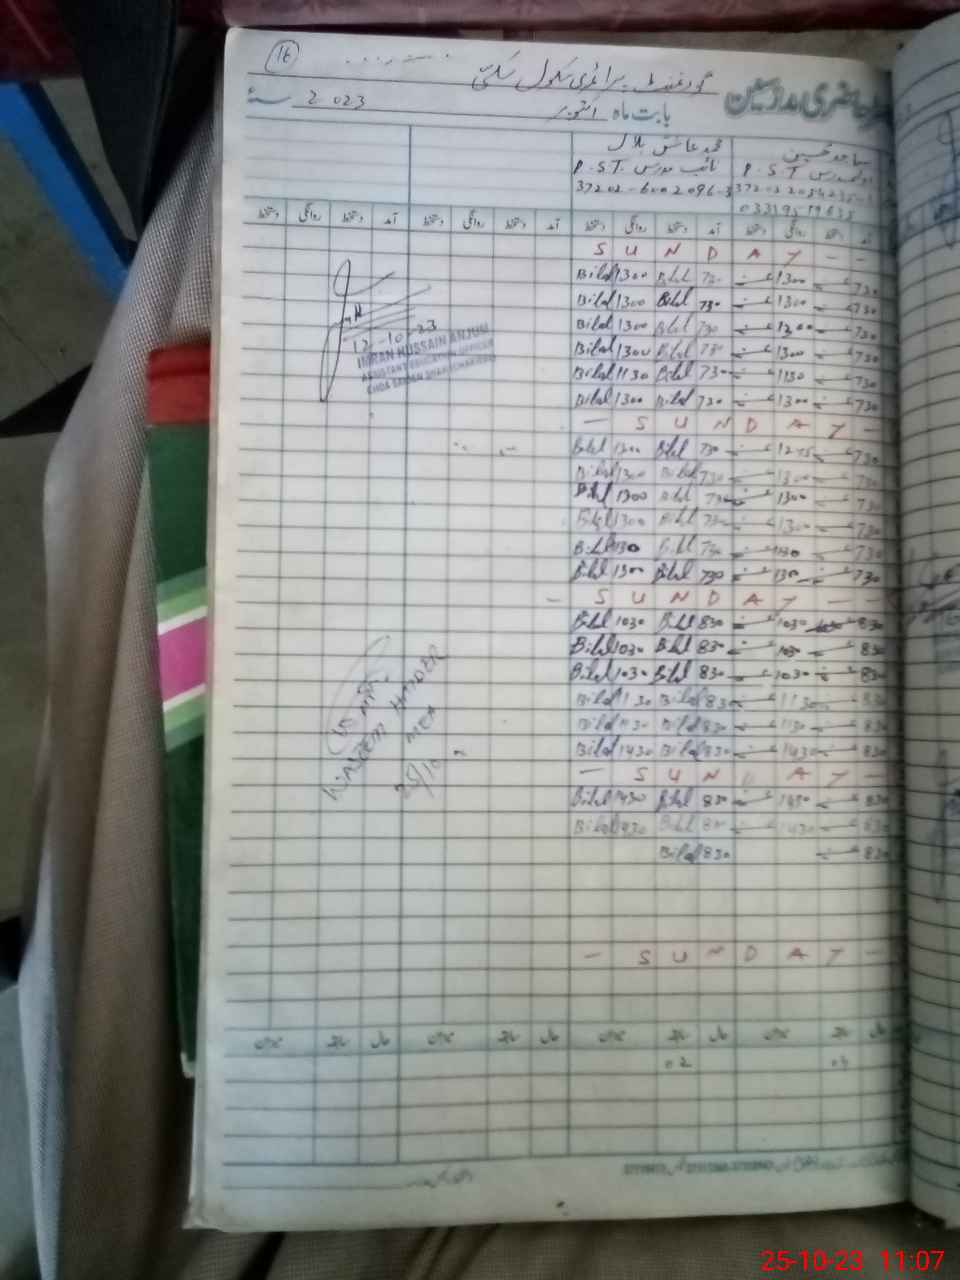 16
گورنمنٹ پرائمری سکول
حاضری مدرسین
بابت ماہ اکتوبر 2023 سنہ
محمد عاشق بلال
ساجد حسین
نائب مدرس P.S.T
P.S.T
آمد دستخط روانگی دستخط آمد دستخط روانگی دستخط آمد دستخط روانگی دستخط آمد دستخط روانگی دستخط
S U N D A Y - -
Bilal 1300 Bilal 730 1300 730
Bilal 1300 Bilal 730 1300 730
Bilal 1300 Bilal 730 1200 730
Bilal 1300 Bilal 730 1300 730
Bilal 1130 Bilal 730 1130 730
Bilal 1300 Bilal 730 1300 730
12-10-23
IMRAN HUSSAIN ANJUM
ASSISTANT EDUCATION OFFICER
- S U N D A Y -
Bilal 1300 Bilal 730 730
Bilal 1300 Bilal 730 1300 730
Bilal 1300 Bilal 730 1300 730
Bilal 1300 Bilal 730 1300 730
Bilal 130 Bilal 730 130 730
Bilal 1300 Bilal 730 130 730
- S U N D A Y -
Bilal 1030 Bilal 830 1030 830
Bilal 1030 Bilal 830 1030 830
Bilal 1030 Bilal 830 1030 830
Bilal 1130 Bilal 830 1130 830
Bilal 1130 Bilal 830 1130 830
Bilal 1430 Bilal 830 1430 830
VISITED
WASEEM HAIDER
MEA
25/10
- S U N D A Y -
Bilal 1430 Bilal 830 1430 830
Bilal 1430 Bilal 830 1430 830
Bilal 830 830
- S U N D A Y -
میزان سابقہ حال میزان سابقہ حال میزان سابقہ حال میزان سابقہ حال
02 03
25-10-23 11:07